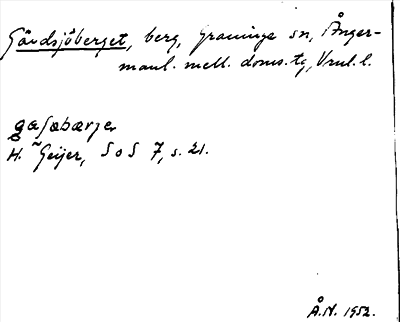 Gärdsjöberget, berg, Graninge sn, Ånger-
manl. mell. doms.tg, Vnl. l.
gaſabærje
H. Geijer, SoS 7, s. 21.
Å.N. 1952.